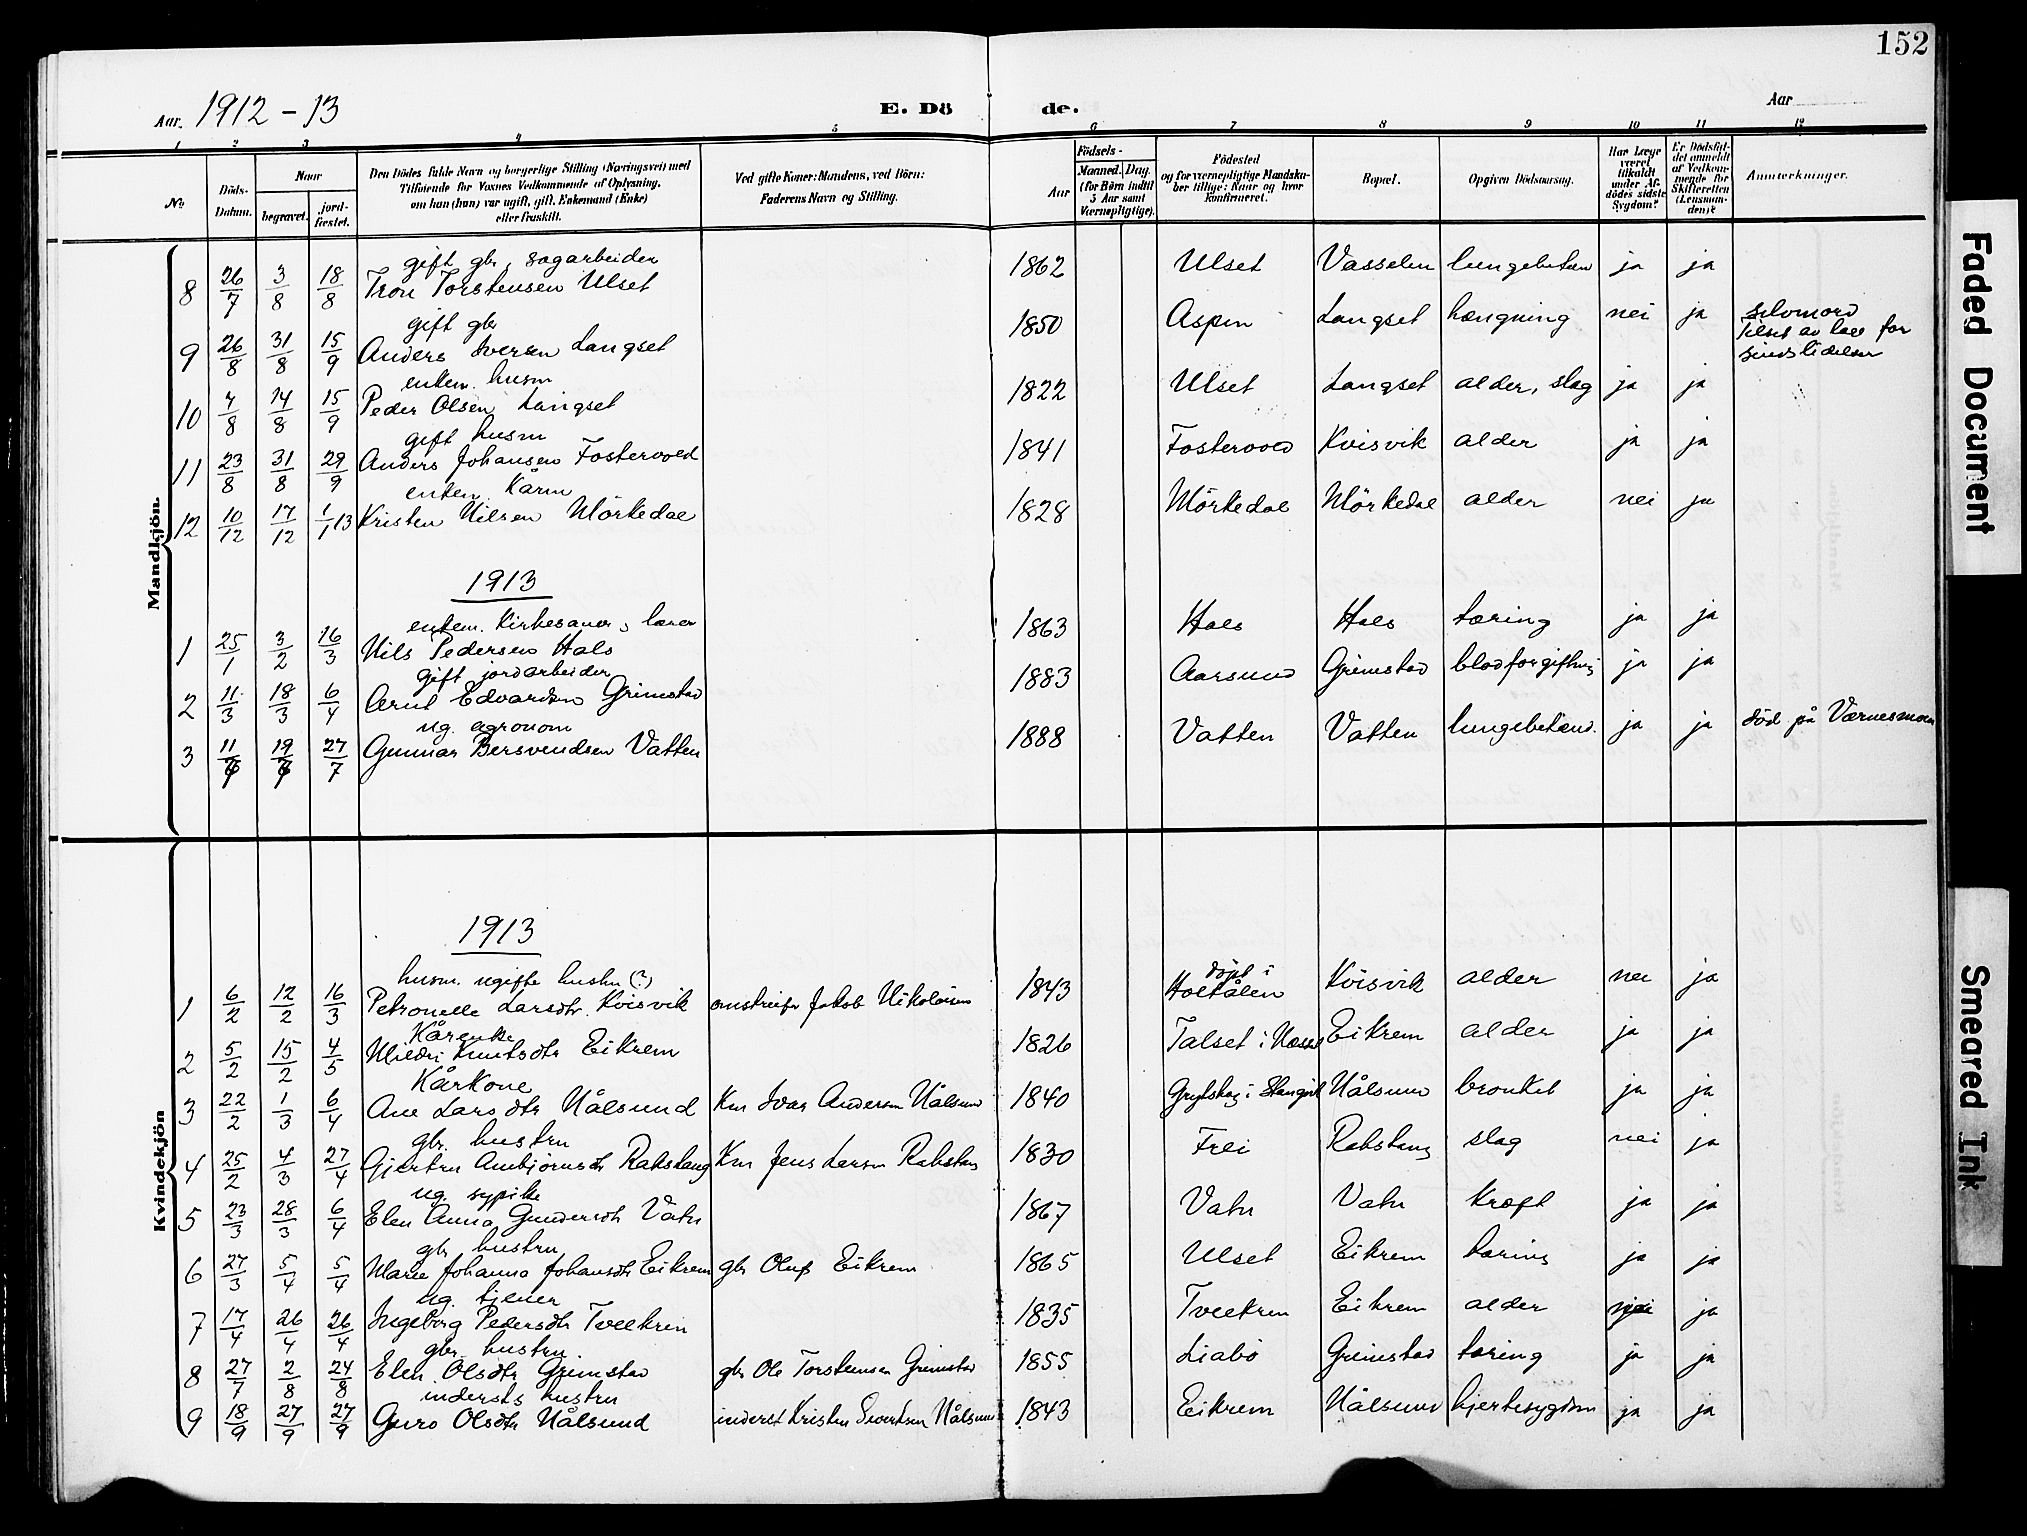 152
Aar. 1912 - 13 E. Dö de. Aar
1 2 3 4 5 6 7 8 9 10 11 12
No Döds-Datum. Naar begravet. jordfæstet. Den Dödes fulde Navn og borgerlige Stilling (Næringsvei) med Tilföiende for Voxnes Vedkommende af Oplysning, om han (hun) var ugift, gift, Enkemand (Enke) eller fraskilt. Ved gifte Koner: Mandens, ved Börn: Faderens Navn og Stilling. Födsels- Aar Maaned. Dag. (for Börn indtil 5 Aar samt Værnepligtige). Födested og for værnepligtige Mandskaber tillige: Naar og hvor konfirmeret. Bopæl. Opgiven Dödsaarsag. Har Læge været tilkaldt under Afdödes sidste Sygdom? Er Dödsfaldet anmeldt af Vedkommende for Skifteretten (Lensmanden)? Anmærkninger.
Mandkjön.
gift gbr, sagarbeider
8 26/7 3/8 18/8 Tron Torstensen Ulset 1862 Ulset Vasselen lungebetæn ja ja
gift gbr
9 26/8 31/8 15/9 Anders Iversen Langset 1850 Aspen Langset hængning nei ja selvmord tilset av læg for sindslidelser
enkem. husm
10 4/8 14/8 15/9 Peder Olsen Langset 1822 Ulset Langset alder, slag ja ja
gift husm
11 23/8 31/8 29/9 Anders Johansen Fostervold 1841 Fostervold Kvisvik alder ja ja
enkem. Kårm
12 10/12 17/12 1/1 13 Kristen Nilsen Mörkedal 1828 Mörkedal Mörkedal alder nei ja
1913
enkem. Kirkesanger, lærer
1 25/1 3/2 16/3 Nils Pedersen Hals 1863 Hals Hals tæring ja ja
gift jordarbeider
2 11/3 18/3 6/4 Arnt Edvardsen Grimstad 1883 Aarsund Grimstad blodforgiftning ja ja
ug. agronom
3 11 19 27/7 Gunnar Bersvendsen Vatten 1888 Vatten Vatten lungebetænd. ja ja död på Værnesmoen
Kvindekjön
1913
husm. ugifte hustru (?)
1 6/2 12/2 16/3 Petronelle Larsdtr. Kvisvik omstreifer Jakob Nikolaisen 1843 döpt i Holtålen Kvisvik alder nei ja
Kårenke
2 5/2 15/2 4/5 Mildri Knutsdtr Eikrem 1826 Talset i Nesset Eikrem alder ja ja
Kårkone
3 22/2 1/3 6/4 Ane Larsdtr Nålsund Km Ivar Andersen Nålsund 1840 Grytskog i Stangvik Nålsund bronkit ja ja
gbr. hustru
4 25/2 4/3 27/4 Gjertru Ambjörnsdtr Rakstang Km Jens Larsen Rakstang 1830 Frei Rakstang slag nei ja
ug. sypike
5 23/3 28/3 6/4 Elen Anna Gundersdtr Vatn 1867 Vatn Vatn kræft ja ja
gbr hustru
6 27/3 5/4 5/4 Marie Johanna Johansdtr Eikrem gbr Oluf Eikrem 1865 Ulset Eikrem tæring ja ja
ug. tjener
7 17/4 26/4 26/4 Ingeborg Pedersdtr Tveekrem 1835 Tveekrem Eikrem alder ja
gbr. hustru.
8 27/7 2/8 24/8 Elen Olsdtr Grimstad gbr Ole Torstensen Grimstad 1855 Liabö Grimstad tæring ja ja
indersts hustru
9 18/9 27/9 27/9 Guro Olsdtr Nålsund inderst Kristen Sivertsen Nålsund 1843 Eikrem Nålsund hjertesygdom ja ja
Faded Document
Smeared Ink